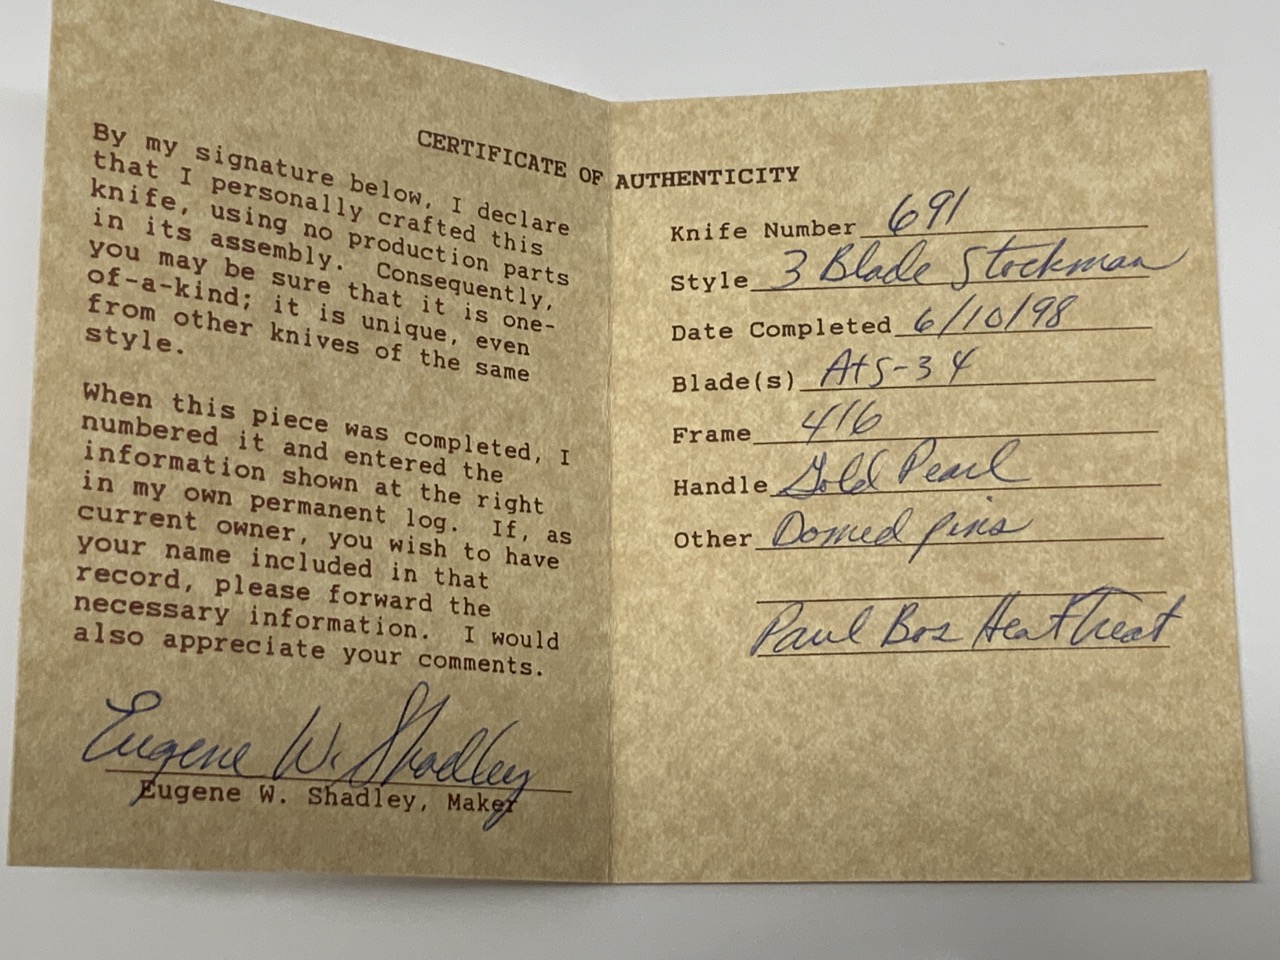 CERTIFICATE OF AUTHENTICITY
By my signature below, I declare
that I personally crafted this
knife, using no production parts
in its assembly. Consequently,
you may be sure that it is one-
of-a-kind; it is unique, even
from other knives of the same
style.
When this piece was completed, I
numbered it and entered the
information shown at the right
in my own permanent log. If, as
current owner, you wish to have
your name included in that
record, please forward the
necessary information. I would
also appreciate your comments.
Eugene W. Shadley
Eugene W. Shadley, Maker
Knife Number 691
Style 3 Blade Stockman
Date Completed 6/10/98
Blade(s) AtS-34
Frame 416
Handle Gold Pearl
Other Domed pins
Paul Bos Heat Treat